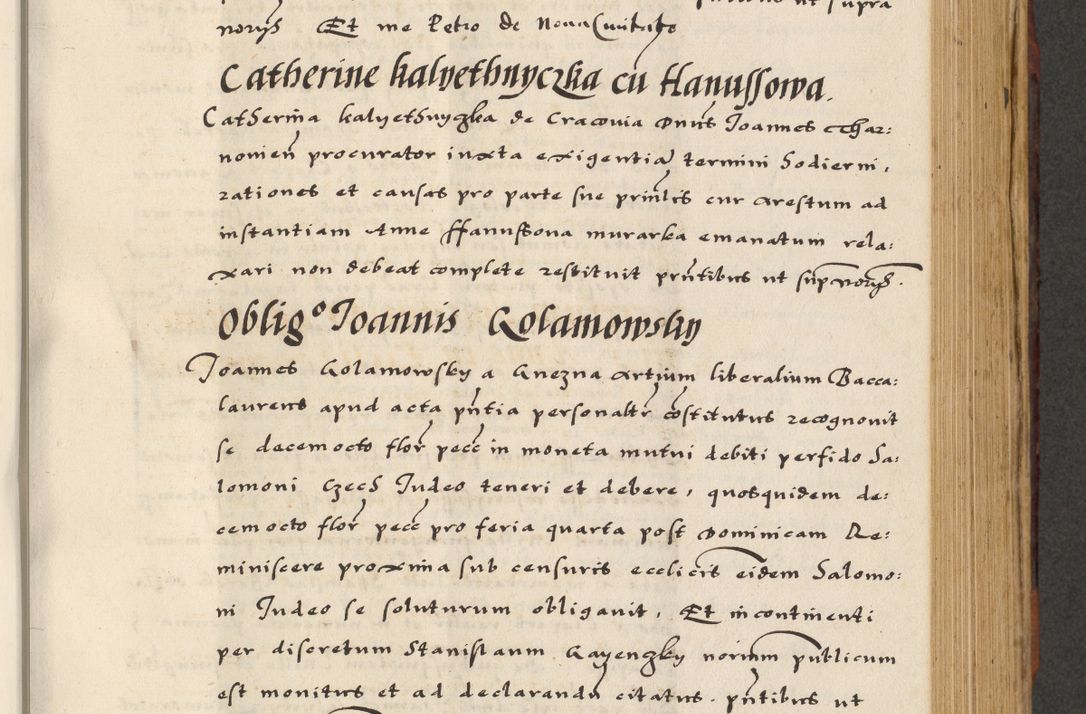 ut supra
noriis Et me Petro de Nova Civitate
Catherine kalyethnyczka cū Hanussowa.
Catherina kalyethnyczka de Cracovia Dn̄us Joannes Czar:
novien̄ procurator iuxta exigentiā termini hodierni,
rationes et causas pro parte sue prin̄lis cur arestum ad
instantiam Anne Hanussova murarka emanatum rela:
xari non debeat complete restituit pn̄tibus ut sup noriis.
Obligº Joannis Golamowsky
Joannes Golamowsky a Gnezna Artium liberalium Bacca:
laureus apud acta pn̄tia personaltr̄ cōstitutus recognovit
se decemocto flor̄ pecc̄ in moneta mutui debiti perfido Sa:
lomoni Czech Judeo teneri et debere, quosquidem de:
cemocto flor̄ pecc̄ pro feria quarta post Dominicam Re:
miniscere proxima sub censuris eccl̄icis eidem Salomo:
ni Judeo se soluturum obligavit, Et incontinenti
per discretum Stanislaum Gayenczky norium publicum
est monitus et ad declarandū citatus. pn̄tibus ut